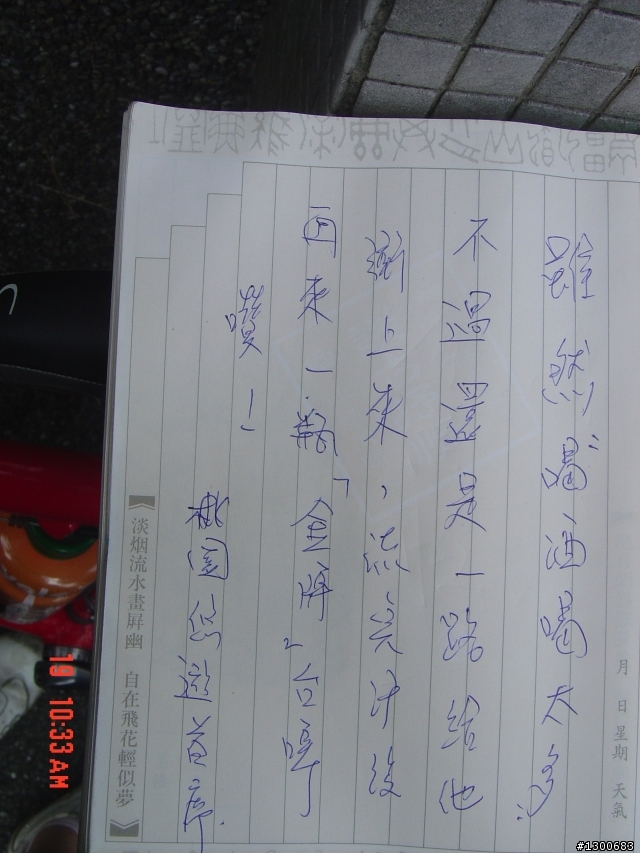 月 日 星期 天氣
雖然"喝酒喝太多"
不過還是一路給他
衝上來，流完汗後
再來一瓶「金牌」台啤
讚！
桃園悠遊
淡烟流水畫屏幽 自在飛花輕似夢
19 10:33 AM
#1300683